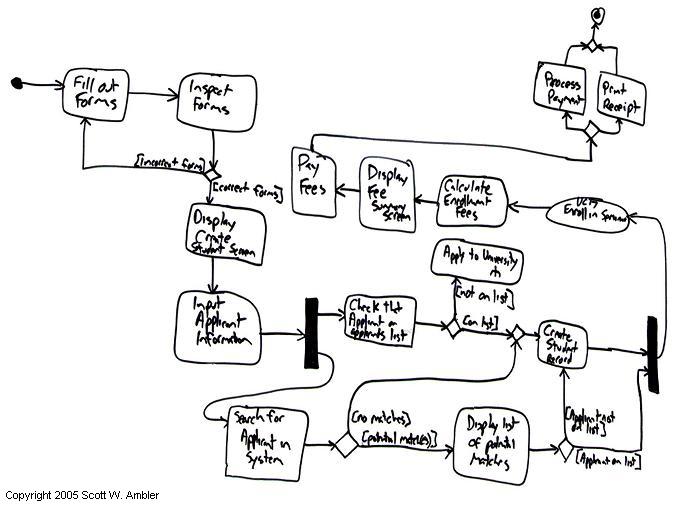 Fill out
Forms
Inspect
Forms
[incorrect forms]
[correct forms]
Display
Create
Student Screen
Input
Applicant
Information
Check that
Applicant on
applicants list
Apply to University
[not on list]
[on list]
Create
Student
Record
Search for
Applicant in
System
[no matches]
[potential matches]
Display list
of potential
Matches
[Applicant not
on list]
[Applicant on list]
Enroll in Seminar
Calculate
Enrollment
Fees
Display
Fee
Summary
Screen
Pay
Fees
Process
Payment
Print
Receipt
Copyright 2005 Scott W. Ambler